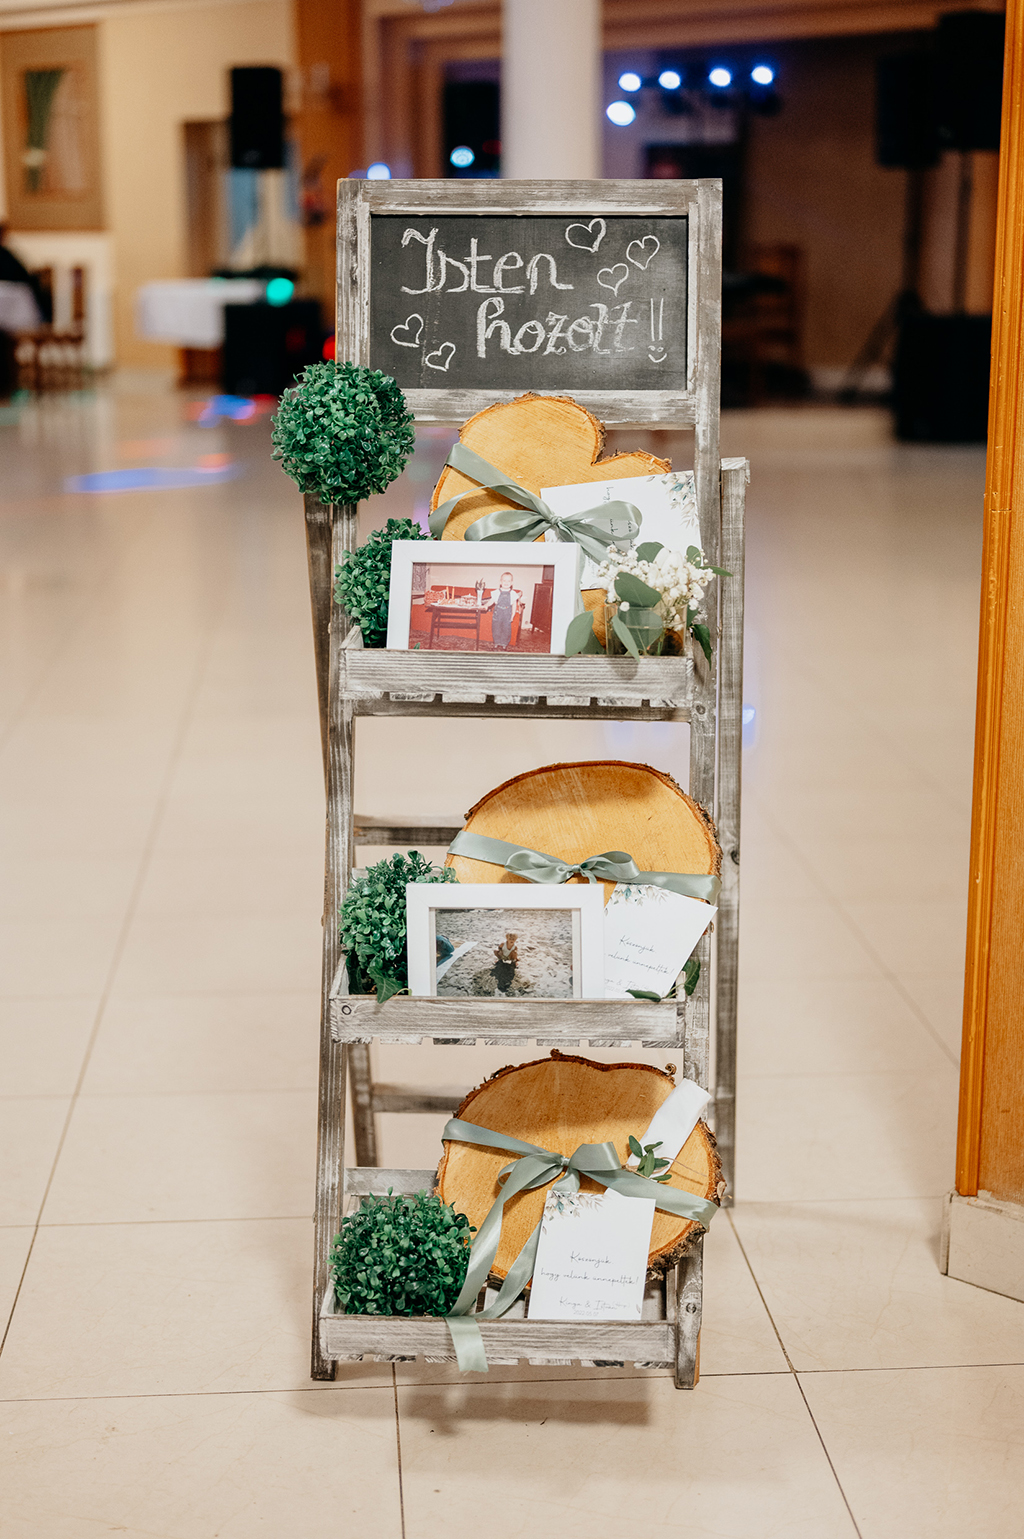 Isten
hozott!!
Köszönjük
velünk ünnepeltek!
Köszönjük,
hogy velünk ünnepeltek!
Kinga &